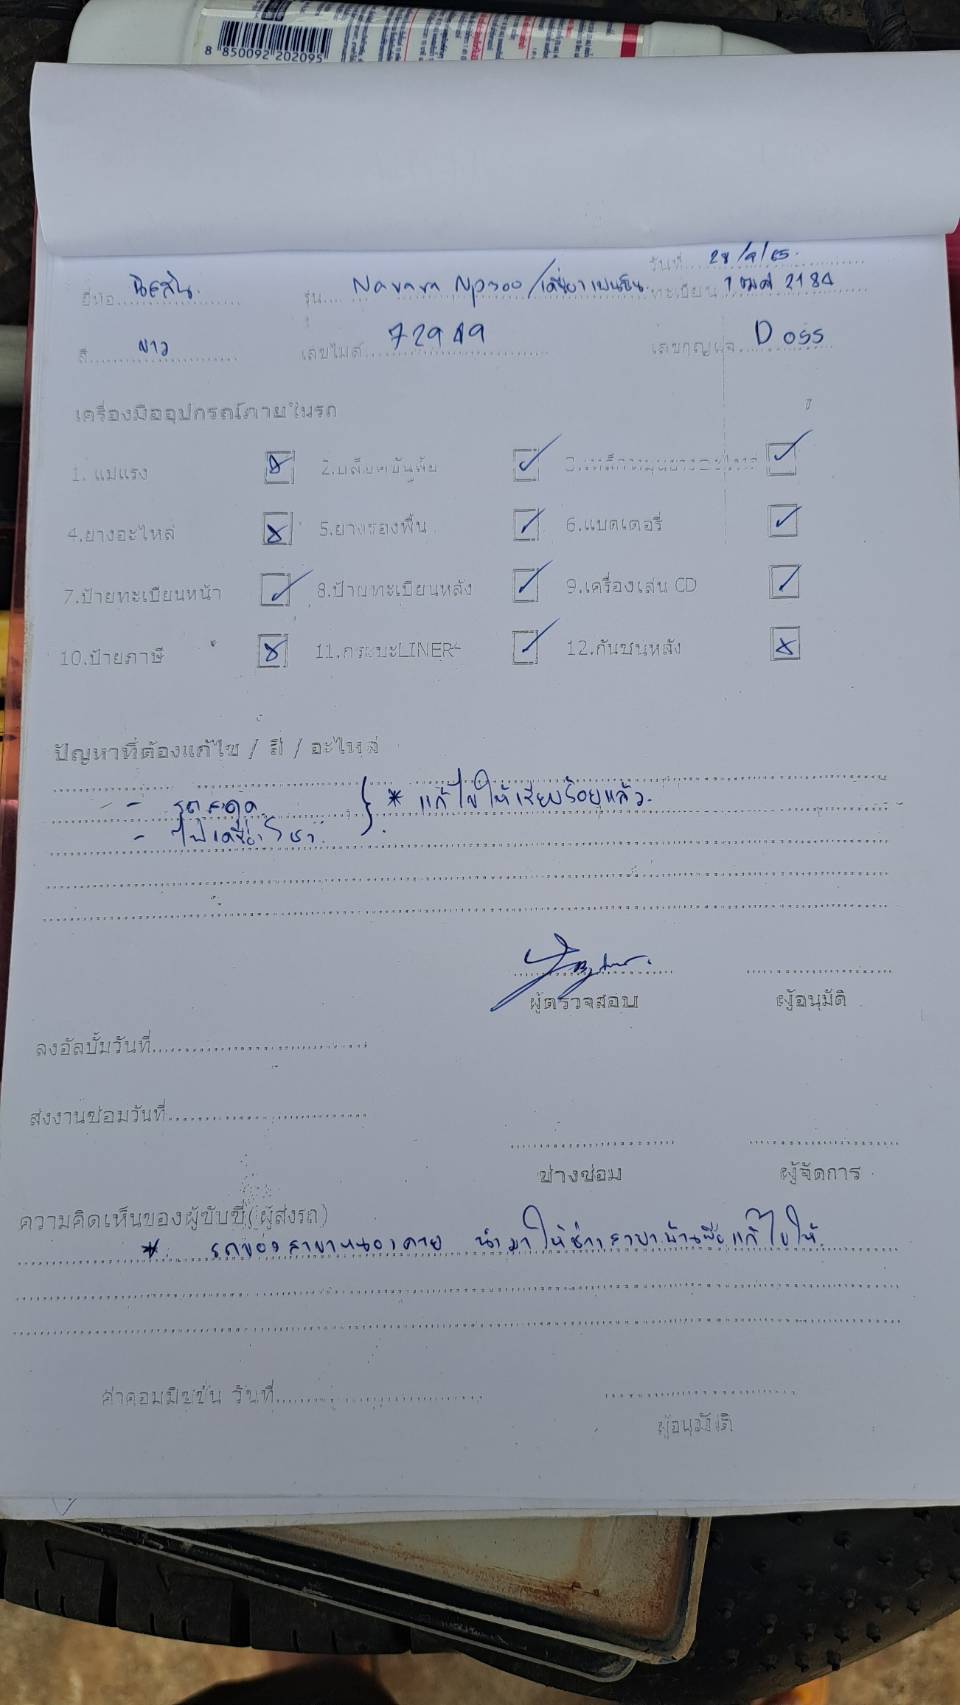 8 850092 202095
วันที่ 28/9/65.
ยี่ห้อ นิสสัน. รุ่น Navara Np300/ ทะเบียน 2184
สี ขาว เลขไมล์ 72949 เลขกุญแจ D 055
เครื่องมืออุปกรณ์ภายในรถ
1. แม่แรง 2.บล็อคขันล้อ
4.ยางอะไหล่ 5.ยางรองพื้น 6.แบตเตอรี่
7.ป้ายทะเบียนหน้า 8.ป้ายทะเบียนหลัง 9.เครื่องเล่น CD
10.ป้ายภาษี 11.กระบะLINER 12.กันชนหลัง
ปัญหาที่ต้องแก้ไข / สี / อะไหล่
- รถสะดุด } * แก้ไขให้เรียบร้อยแล้ว.
- ไฟเครื่องโชว์
ผู้ตรวจสอบ ผู้อนุมัติ
ลงอัลบั้มวันที่
ส่งงานซ่อมวันที่
ช่างซ่อม ผู้จัดการ
ความคิดเห็นของผู้ขับขี่(ผู้ส่งรถ)
* รถของสาขาหนองคาย นำมาให้ช่างสาขาบ้านผือแก้ไขให้
ค่าคอมมิชชั่น วันที่
ผู้อนุมัติ